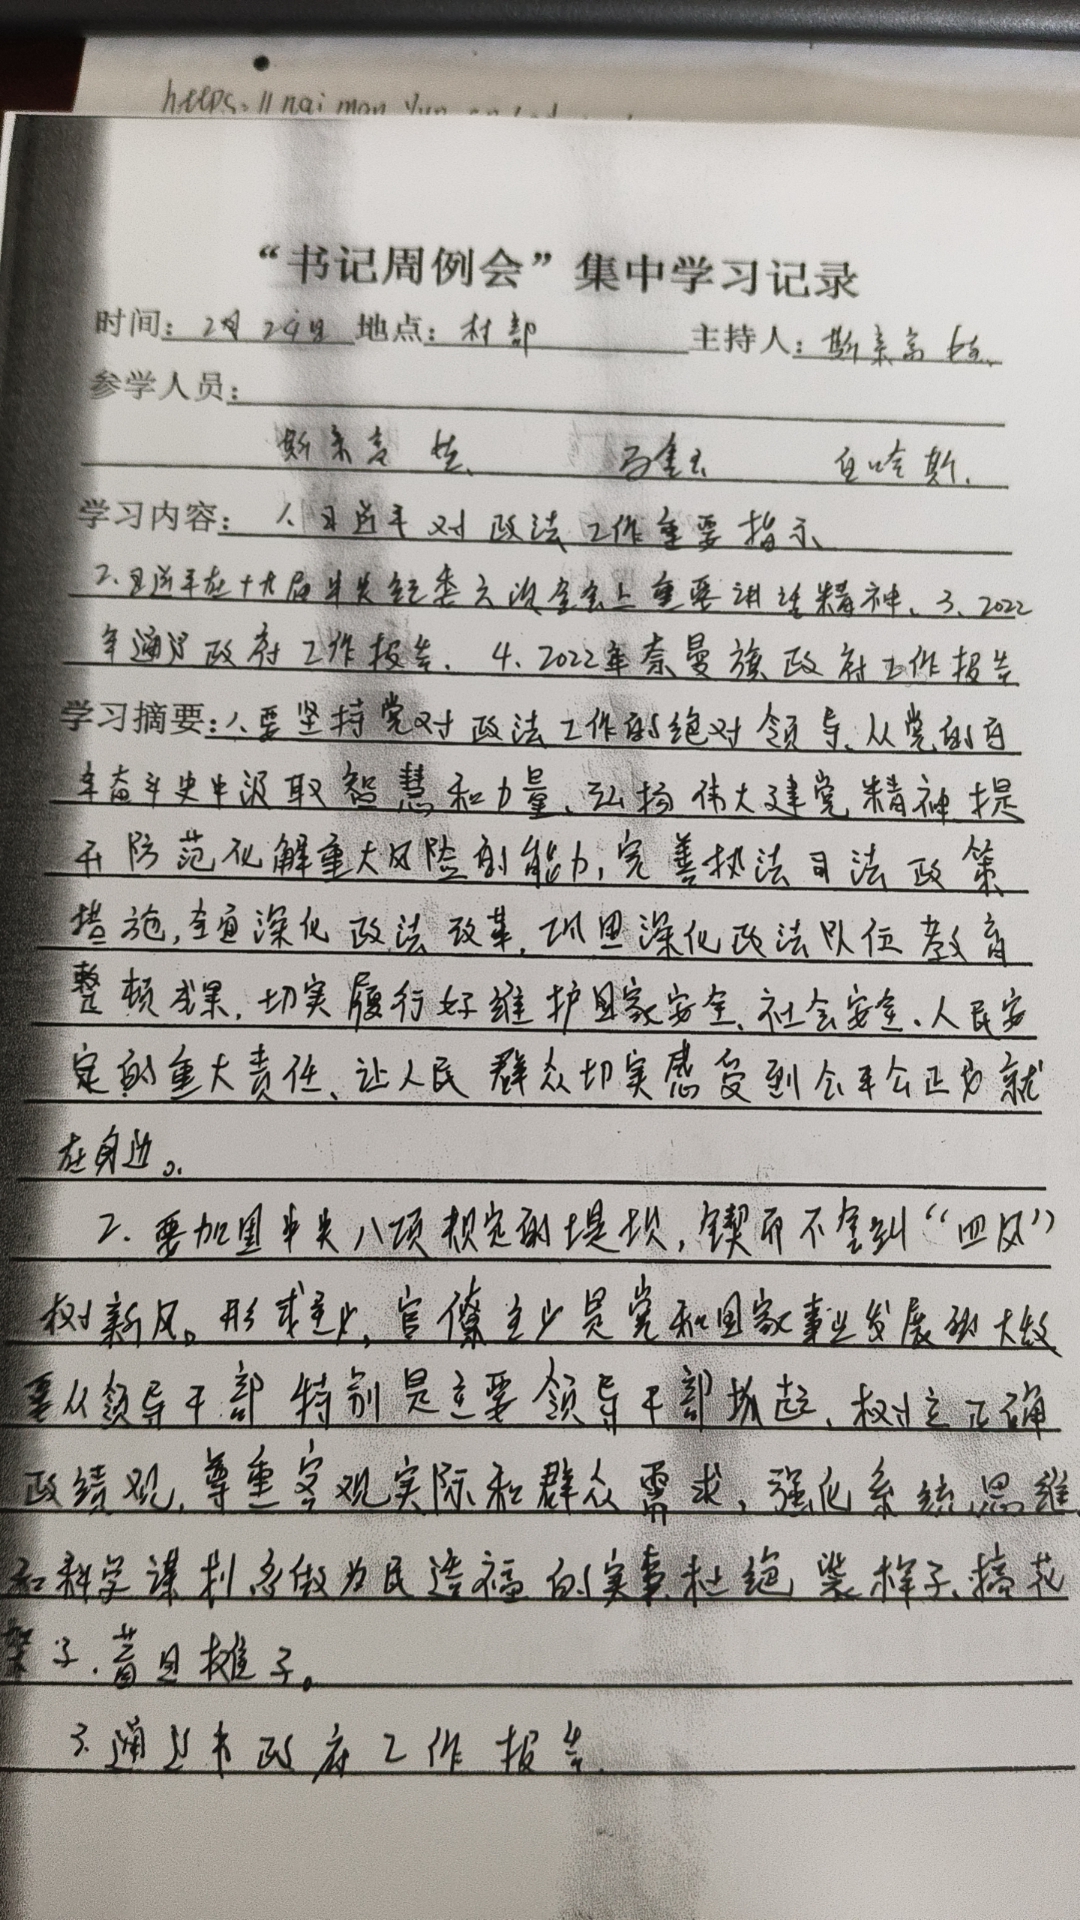 https://naiman.yun.cn
“书记周例会”集中学习记录
时间：2月24日 地点：村部 主持人：斯
参学人员：
斯 白哈斯
学习内容：1、习近平对政法工作重要指示、
2、习近平在十九届中央纪委六次全会上重要讲话精神、3、2022
年通辽政府工作报告、4、2022年奈曼旗政府工作报告
学习摘要：1、要坚持党对政法工作的绝对领导、从党的百
年奋斗史中汲取智慧和力量、弘扬伟大建党精神提
升防范化解重大风险的能力，完善执法司法政策
措施，全面深化政法改革，巩固深化政法队伍教育
整顿成果，切实履行好维护国家安全、社会安全、人民安
定的重大责任、让人民群众切实感受到公平公正力就
在身边。
2、要加固中央八项规定的堤坝，锲而不舍到“四风”
树新风。形式主义，官僚主义是党和国家事业发展的大敌
要从领导干部特别是主要领导干部抓起、树立正确
政绩观，尊重客观实际和群众需求，强化系统思维
和科学谋划多做为民造福的实事杜绝装样子、搞花
架子、蓄且摊子。
3、通辽市政府工作报告